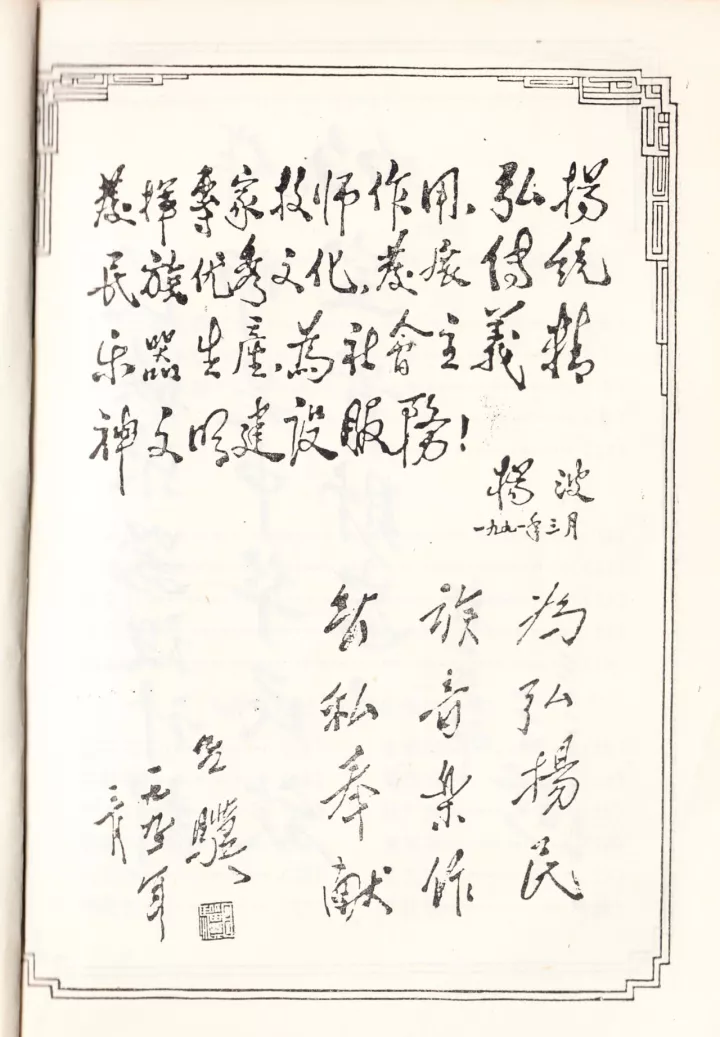 發揮專家技师作用、弘揚
民族优秀文化、發展传统
乐器生産、為社會主義精
神文明建设服務！
楊波
一九九一年三月
為弘揚民
族音樂作
無私奉献
吕驥
一九九一年
三月